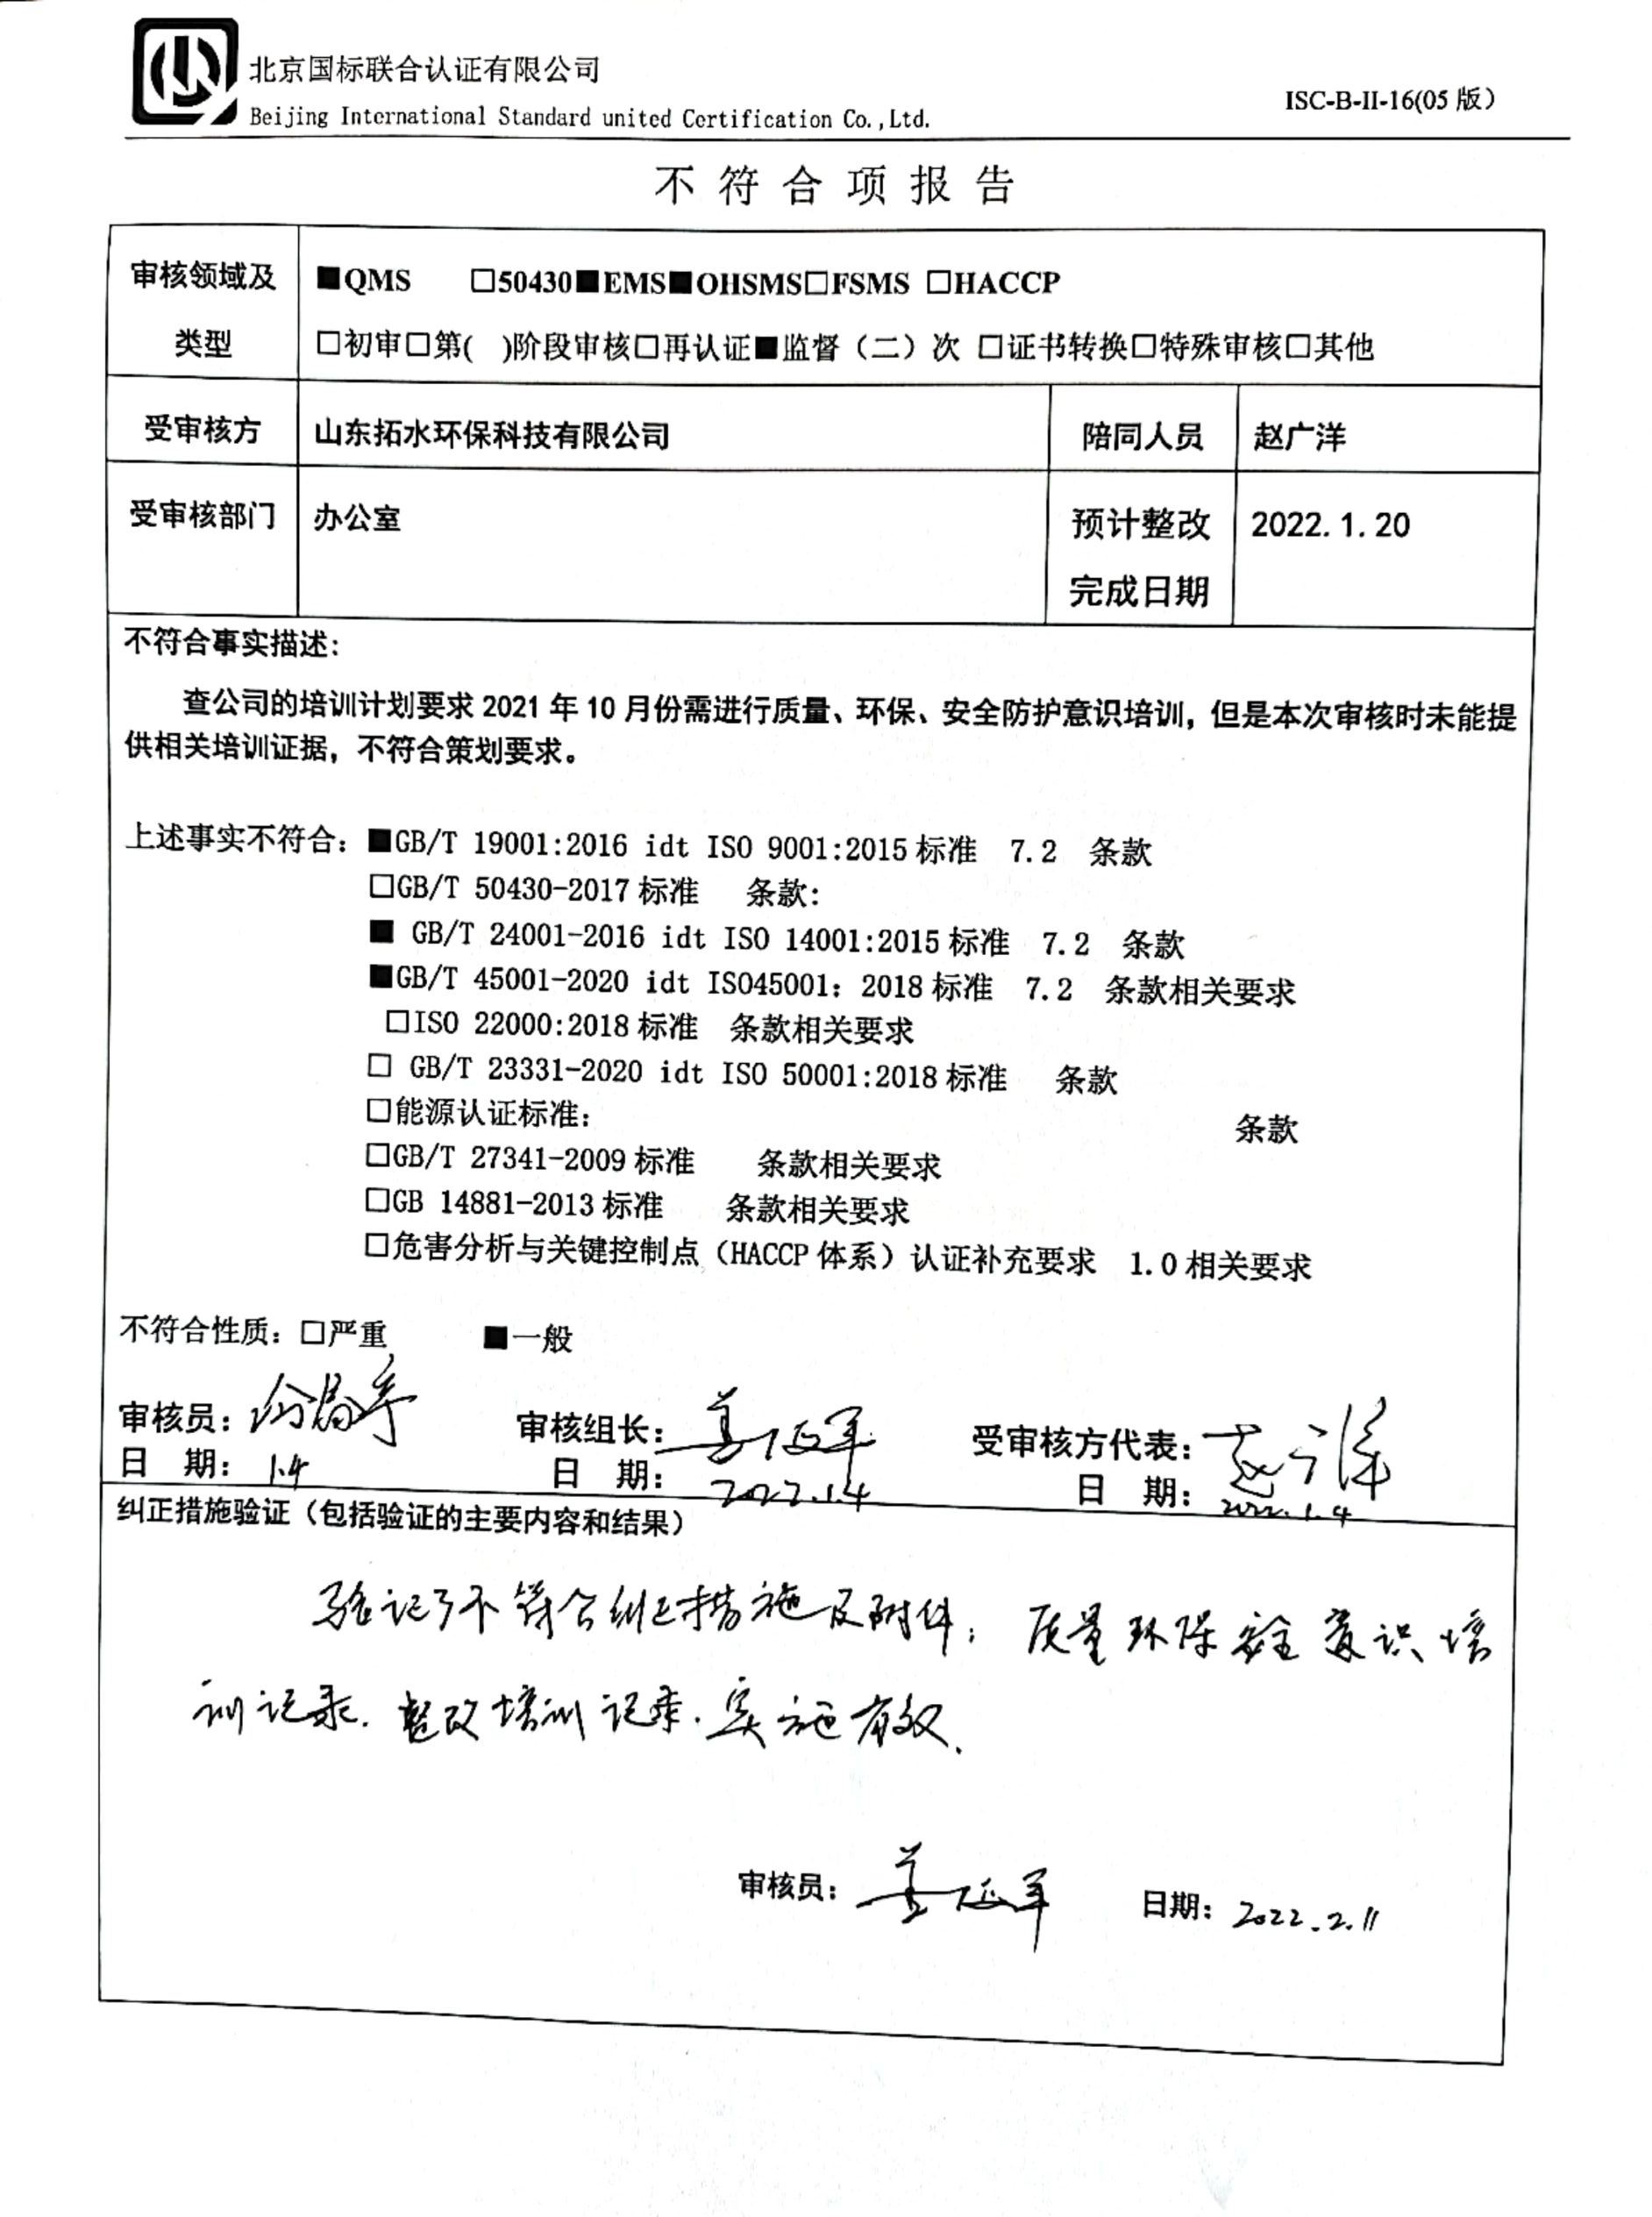 北京国标联合认证有限公司
Beijing International Standard united Certification Co.,Ltd.
ISC-B-II-16(05 版)
不符合项报告
审核领域及
类型
■QMS □50430■EMS■OHSMS□FSMS □HACCP
□初审□第( )阶段审核□再认证■监督（二）次 □证书转换□特殊审核□其他
受审核方
山东拓水环保科技有限公司
陪同人员
赵广洋
受审核部门
办公室
预计整改
完成日期
2022.1.20
不符合事实描述：
查公司的培训计划要求 2021 年 10 月份需进行质量、环保、安全防护意识培训，但是本次审核时未能提
供相关培训证据，不符合策划要求。
上述事实不符合：■GB/T 19001:2016 idt ISO 9001:2015 标准 7.2 条款
□GB/T 50430-2017 标准 条款：
■ GB/T 24001-2016 idt ISO 14001:2015 标准 7.2 条款
■GB/T 45001-2020 idt ISO45001：2018 标准 7.2 条款相关要求
□ISO 22000:2018 标准 条款相关要求
□ GB/T 23331-2020 idt ISO 50001:2018 标准 条款
□能源认证标准： 条款
□GB/T 27341-2009 标准 条款相关要求
□GB 14881-2013 标准 条款相关要求
□危害分析与关键控制点（HACCP 体系）认证补充要求 1.0 相关要求
不符合性质：□严重 ■一般
审核员：
日 期：1.4
审核组长：姜延军
日 期：2022.1.4
受审核方代表：赵广洋
日 期：2022.1.4
纠正措施验证（包括验证的主要内容和结果）
验证了不符合纠正措施及附件：质量环保安全意识培
训记录．整改培训记录．实施有效．
审核员：姜延军 日期：2022.2.11